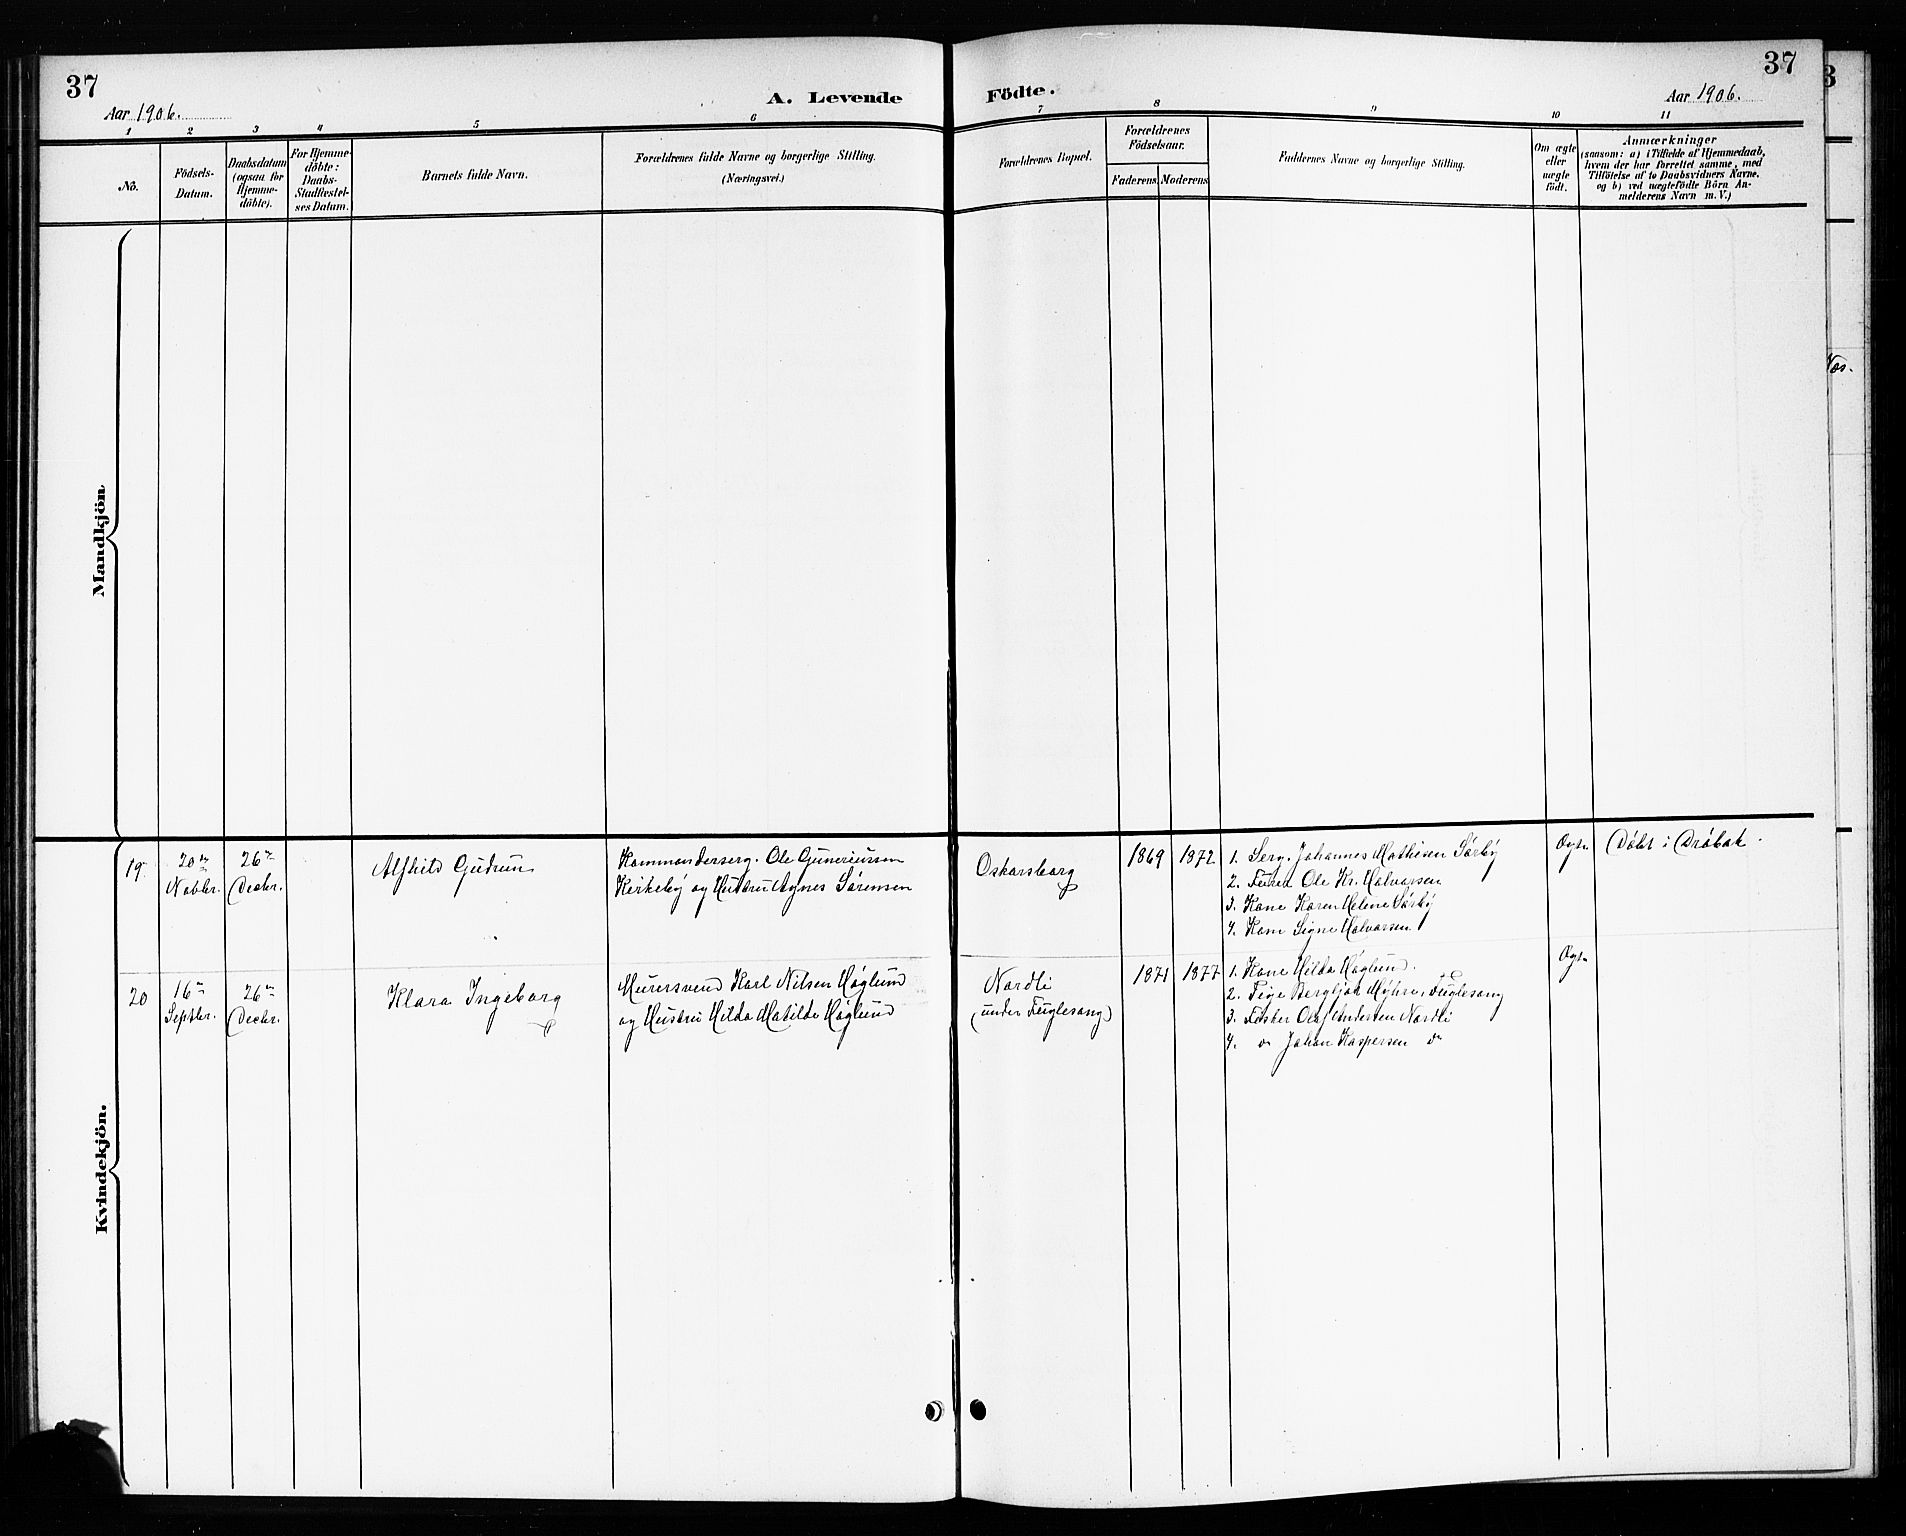 37
Aar 1906.
A. Levende
Födte.
37
Aar 1906.
1 2 3 4 5 6 7 8 9 10 11
No.
Födsels-
Datum.
Daabsdatum
(ogsaa for
Hjemme-
döbte).
For Hjemme-
döbte:
Daabs-
Stadfæstel-
ses Datum.
Barnets fulde Navn.
Forældrenes fulde Navne og borgerlige Stilling.
(Næringsvei.)
Forældrenes Bopæl.
Forældrenes
Födselsaar.
Faderens Moderens
Faddernes Navne og borgerlige Stilling.
Om ægte
eller
uægte
födt.
Anmærkninger
(saasom: a) i Tilfælde af Hjemmedaab,
hvem der har forrettet samme, med
Tilföielse af to Daabsvidners Navne.
og b) ved uægtefödte Börn An-
melderens Navn m. V.)
Mandkjön
Kvindekjön.
19.
20de
Novbr.
26de
Decbr.
Alfhild Gudrun
Kommanderserg. Ole Guneriussen
Kirkeby og Hustru Agnes Sørensen
Oskarsborg
1869
1872
1. Serg. Johannes Mathisen Sørby
2. Ole Kr. Halvorsen
3. Kone Karen Helene Sørby
4. Kone Signe Halvorsen
Ægte
Döbt i Dröbak.
20
16de
Septbr.
26de
Decbr.
Klara Ingeborg
Murersvend Karl Nilsen Høglund
og Hustru Hilda Matilde Høglund
Nordli
(under Fuglesang)
1871
1877
1. Kone Hilda Høglund.
2. Pige Bergljot Myhre, Fuglesang
3. Fisker Olaf Andersen Nordli
4. do Johan Kaspersen do
Ægte